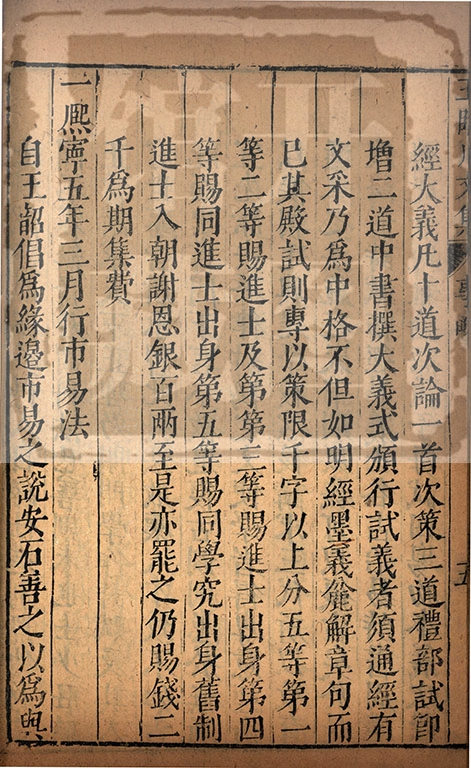 經大義凡十道次論一首次策三道禮部試卽
增二道中書撰大義式頒行試義者須通經有
文采乃爲中格不但如明經墨義麄解章句而
已其殿試則專以策限千字以上分五等第一
等二等賜進士及第第三等賜進士出身第四
等賜同進士出身第五等賜同學究出身舊制
進士入朝謝恩銀百兩至是亦罷之仍賜錢二
千爲期集費
一熙寧五年三月行市易法
自王韶倡爲緣邊市易之說安石善之以爲與